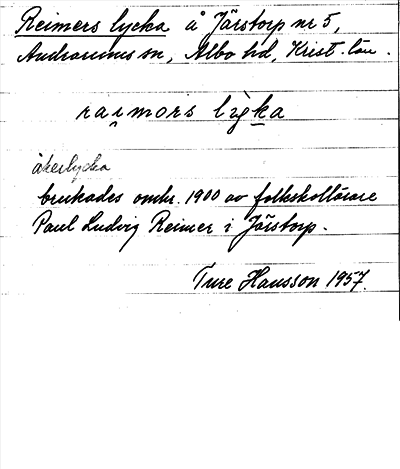 Reimers lycka å Järstorp nr 5,
Andrarums sn, Albo hd, Krist. län.
raimors lyka
åkerlycka
brukades omkr. 1900 av folkskollärare
Paul Ludvig Reimer i Järstorp.
Ture Hansson 1957.